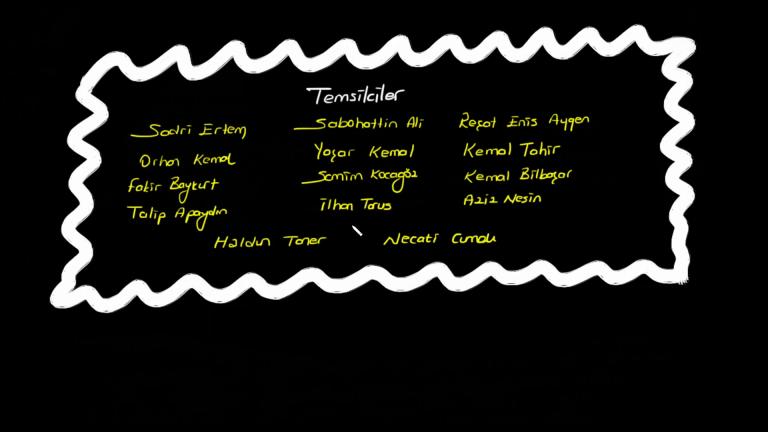 Temsilciler
Sadri Ertem Sabahattin Ali Reşat Enis Aygen
Orhan Kemal Yaşar Kemal Kemal Tahir
Fakir Baykurt Samim Kocagöz Kemal Bilbaşar
Talip Apaydın İlhan Tarus Aziz Nesin
Haldun Taner Necati Cumalı